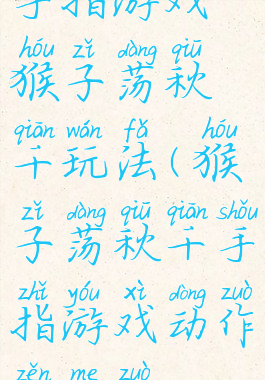 手指游戏
hóu zǐ dàng qiū
猴子荡秋
qiān wán fǎ hóu
千玩法(猴
zǐ dàng qiū qiān shǒu
子荡秋千手
zhǐ yóu xì dòng zuò
指游戏动作
zěn me zuò